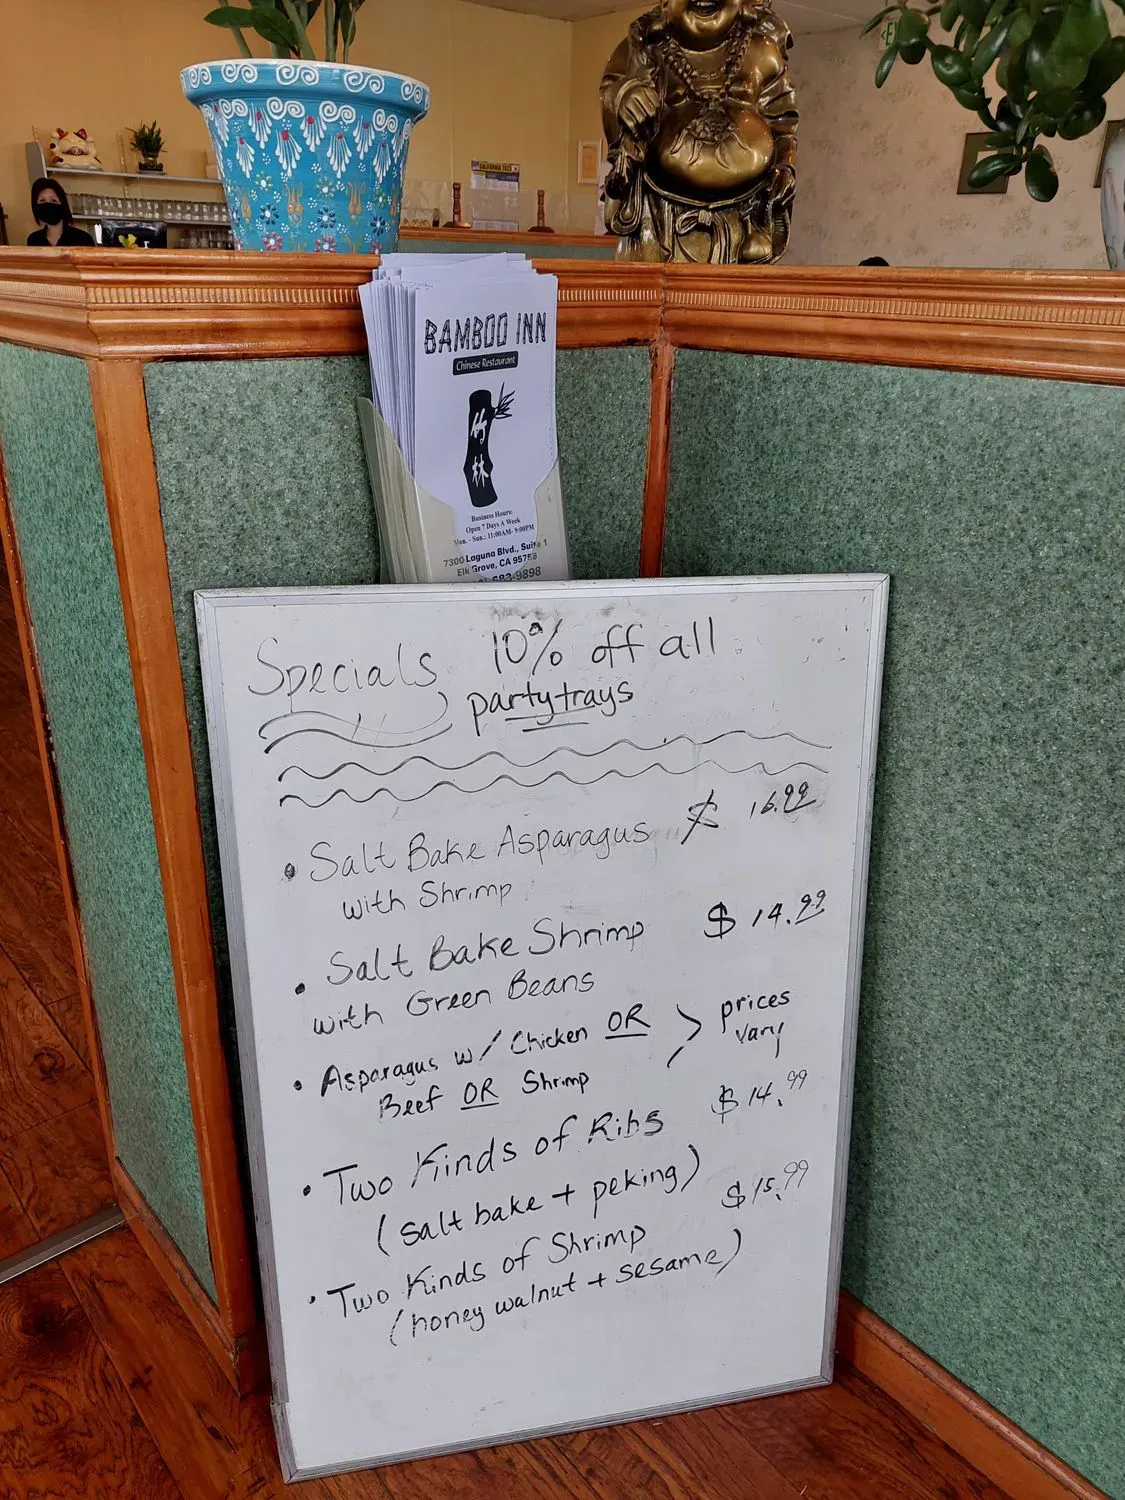 CALIFORNIA 2023
BAMBOO INN
Chinese Restaurant
竹
林
Business Hours:
Open 7 Days A Week
Mon. - Sun.: 11:00AM- 9:00PM
7300 Laguna Blvd., Suite 1
Elk Grove, CA 95758
683-9898
Specials 10% off all
party trays
• Salt Bake Asparagus $ 16.99
with Shrimp
• Salt Bake Shrimp $ 14.99
with Green Beans
• Asparagus w/ Chicken OR > prices
Beef OR Shrimp vary
• Two Kinds of Ribs $ 14.99
(salt bake + peking)
• Two Kinds of Shrimp $ 15.99
(honey walnut + sesame)